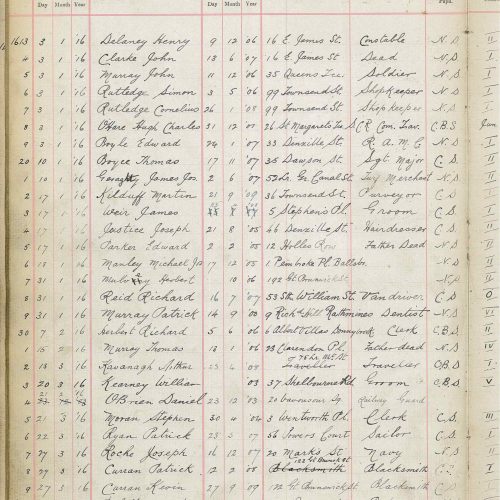 Day Month Year Day Month Year Pupil.
1613 3 1 '16 Delaney Henry 9 12 06 16 E. James St. Constable N.S. II
4 3 1 '16 Clarke John 13 6 07 16 E. James St Dead N.S. I
5 3 1 '16 Murray John 11 12 '06 35 Queens Tce. Soldier N.S. I
6 3 1 '16 Rutledge Simon 3 5 '06 99 Townsend St Shopkeeper N.S. II
7 3 1 '16 Rutledge Cornelius 26 1 '08 99 Townsend St Shopkeeper N.S. I
8 3 1 '16 O'Hare Hugh Charles 31 12 07 26 St Margarets Tce S.C.R. Com. Trav. C.B.S. Jun
9 3 1 '16 Boyle Edward 24 1 '07 33 Denzille St. R.A.M.C. N.S. I
20 10 1 '16 Boyce Thomas 17 11 '07 35 Dawson St. Sgt. Major C.S. I
1 10 1 '16 James Jos. 2 6 '07 Gr. Canal St. Merchant N.S. I
2 17 1 '16 Kilduff Martin 21 9 '09 36 Townsend St. Purveyor C.S.
3 17 1 '16 Weir James 5 Stephens Pl. Groom C.S. I
4 17 1 '16 Joseph 21 8 '05 46 Denzille St. Hairdresser C.S. II
5 17 1 '16 Parker Edward 2 2 '05 12 Holles Row Father Dead N.S. II
6 18 1 '16 Manley Michael Jas 17 12 '05 1 Pembroke Pl. Ballsbr. N.S.
7 31 1 '16 Herbert 10 06 192 Gt. Brunswick St N.S.
8 31 1 '16 Reid Richard 16 7 '07 53 Sth William St. Vandriver C.S. O
9 31 1 '16 Murray Patrick 14 9 9 Richd Hill Rathmines Dentist N.S. VI
30 7 2 '16 Herbert Richard 5 6 06 6 Albert Villas Donnybrook Clerk C.B.S. II
15 Murray Thomas 13 1 '06 23 Clarendon Pl. Father dead N.S. IV
2 13 3 '16 Kavanagh Arthur 23 6 Traveller C.B.S. I
3 20 3 '16 Kearney William '03 37 Shelbourne Rd Groom C.B.S. V
4 O'Brien Daniel 23 12 '03 20 Railway Guard
5 21 3 '16 Moran Stephen 30 4 '04 3 Wentworth Pl. Clerk C.S. III
6 22 3 '16 Ryan Patrick 5 07 56 Powers Court Sailor C.S. I
7 27 3 '16 Roche Joseph 16 12 '07 20 Marks St Navy N.S. I
8 27 3 '16 Curran Patrick 12 2 '08 Blacksmith Blacksmith C.S. I
9 27 3 '16 Curran Kevin 27 9 '09 Gt. Brunswick St Blacksmith C.S.